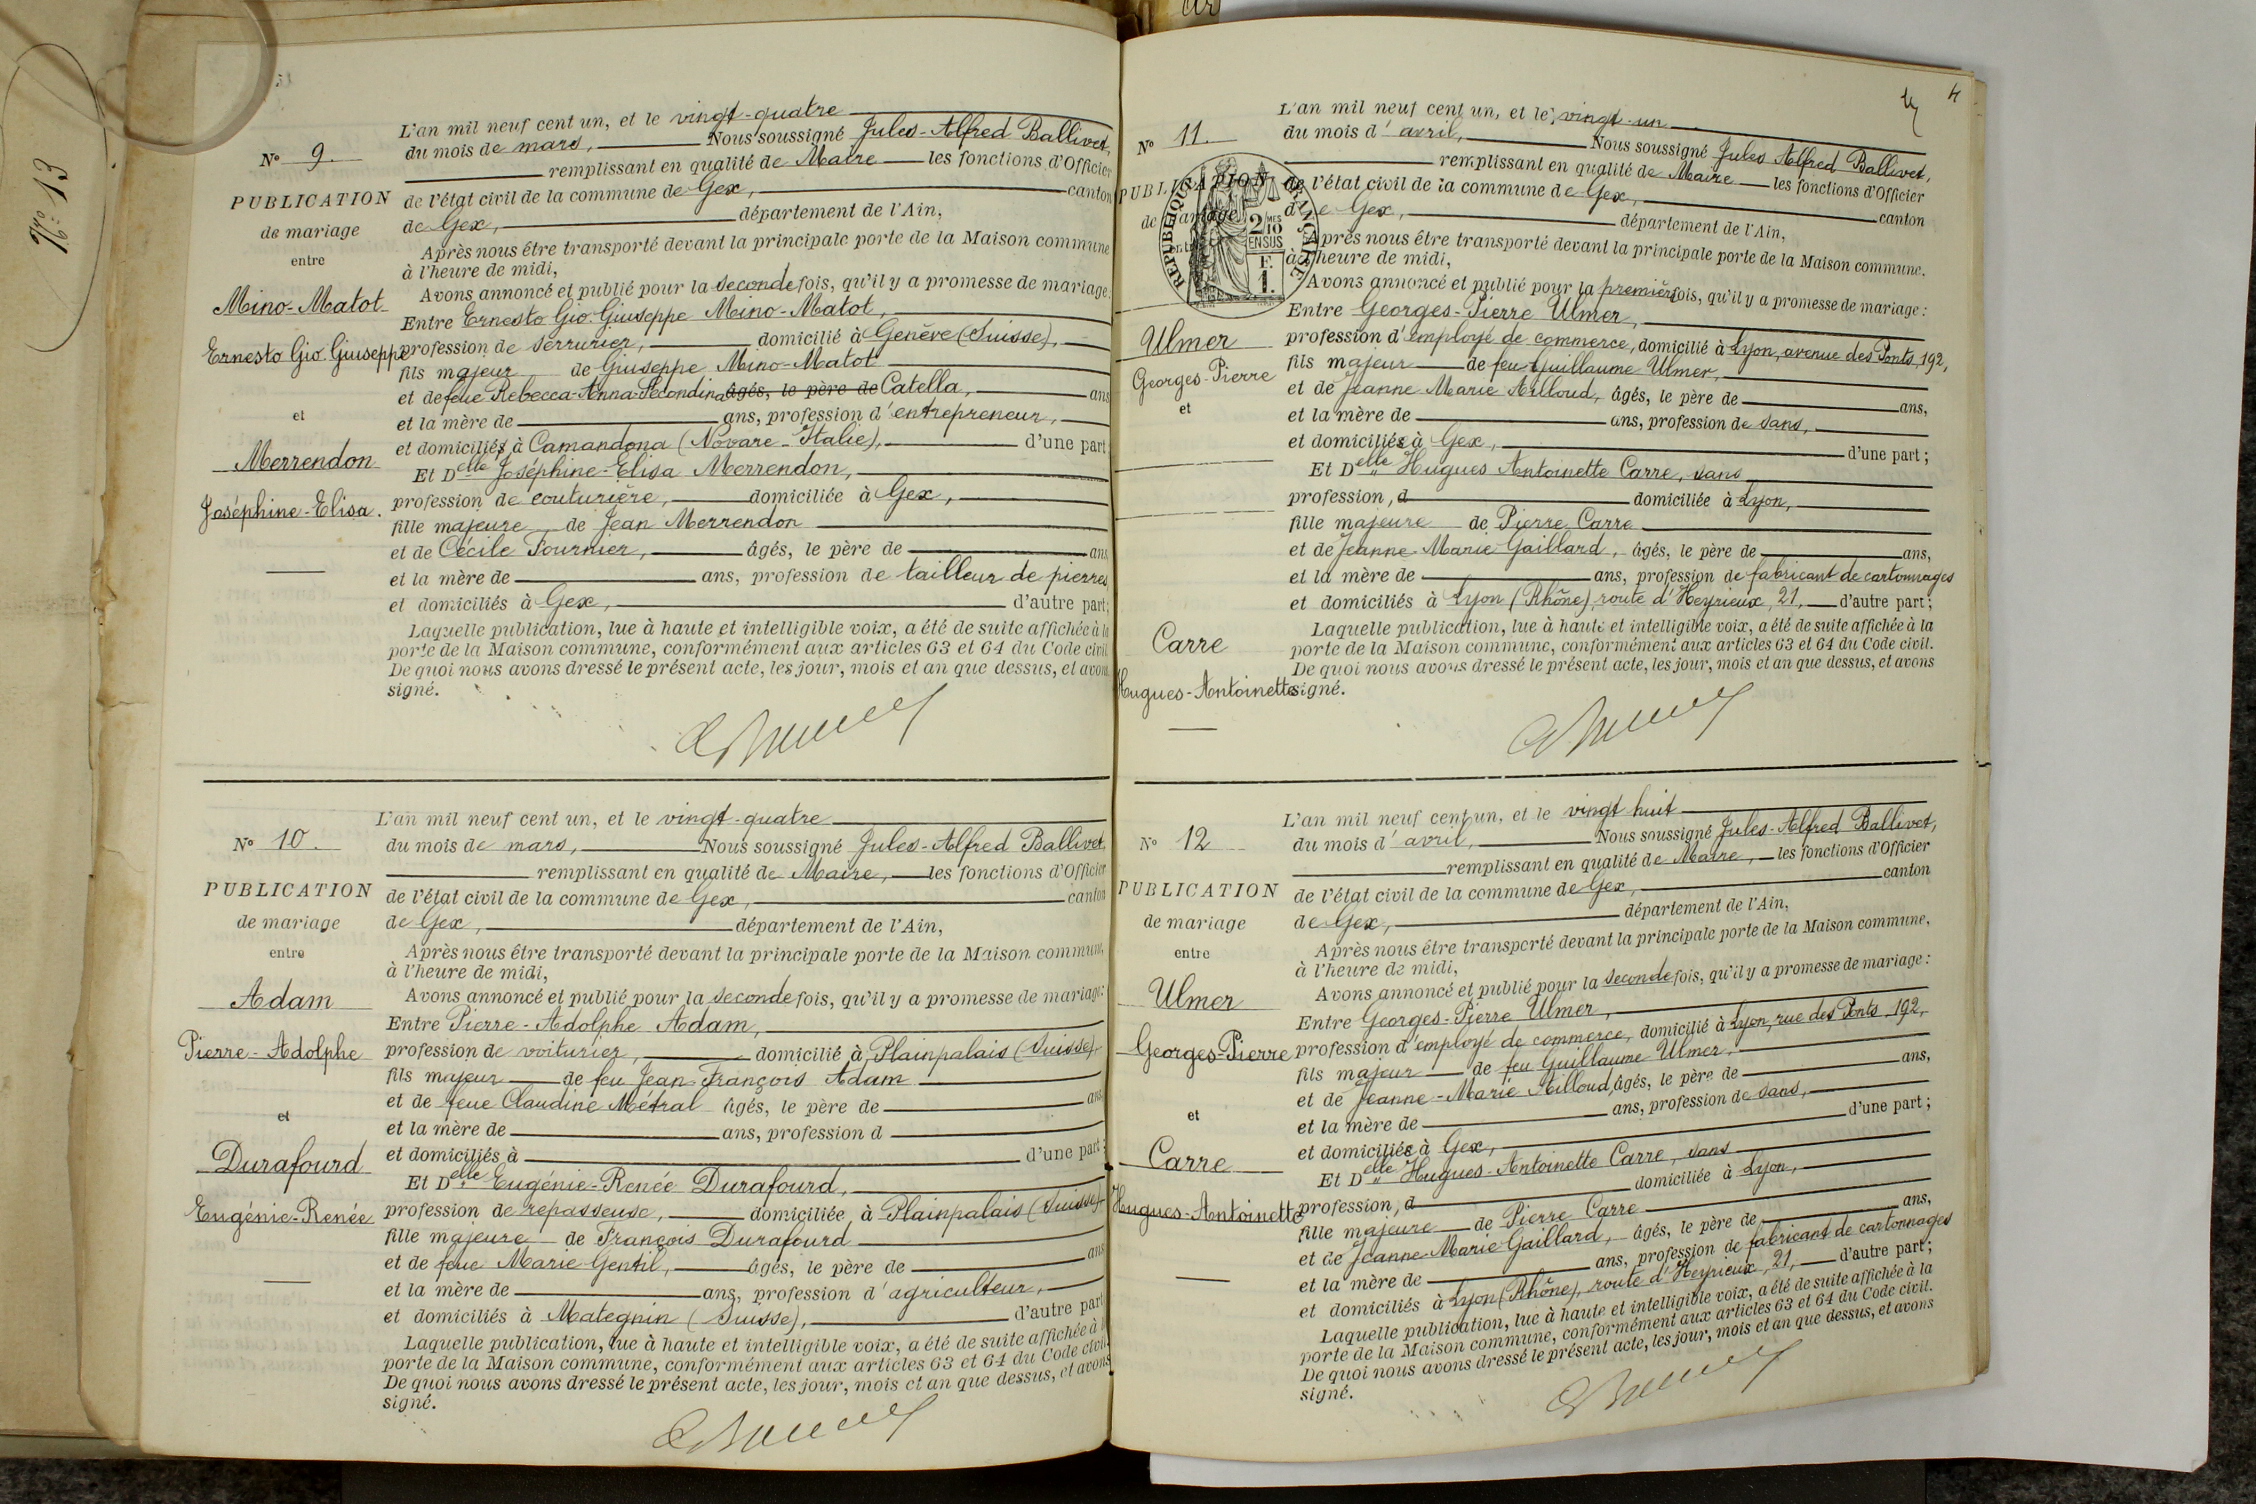 N° 13
N° 9.
PUBLICATION
de mariage
entre
Mino-Matot
Ernesto Gio. Giuseppe
et
Merrendon
Joséphine-Elisa.
L'an mil neuf cent un, et le vingt-quatre
du mois de mars, Nous soussigné Jules-Alfred Ballivet,
remplissant en qualité de Maire les fonctions d'Officier
de l'état civil de la commune de Gex, canton
de Gex, département de l'Ain,
Après nous être transporté devant la principale porte de la Maison commune
à l'heure de midi,
Avons annoncé et publié pour la seconde fois, qu'il y a promesse de mariage:
Entre Ernesto Gio. Giuseppe Mino-Matot,
profession de serrurier, domicilié à Genève (Suisse),
fils majeur de Giuseppe Mino-Matot
et de feue Rebecca-Anna-Secondina âgés, le père de Catella, ans
et la mère de ans, profession d'entrepreneur,
et domiciliés à Camandona (Novare-Italie), d'une part
Et Delle Joséphine-Elisa Merrendon,
profession de couturière, domiciliée à Gex,
fille majeure de Jean Merrendon
et de Cécile Fournier, âgés, le père de ans
et la mère de ans, profession de tailleur de pierres
et domiciliés à Gex, d'autre part;
Laquelle publication, lue à haute et intelligible voix, a été de suite affichée à la
porte de la Maison commune, conformément aux articles 63 et 64 du Code civil
De quoi nous avons dressé le présent acte, les jour, mois et an que dessus, et avons
signé.
N° 10.
PUBLICATION
de mariage
entre
Adam
Pierre-Adolphe
et
Durafourd
Eugénie-Renée
L'an mil neuf cent un, et le vingt-quatre
du mois de mars, Nous soussigné Jules-Alfred Ballivet,
remplissant en qualité de Maire, les fonctions d'Officier
de l'état civil de la commune de Gex, canton
de Gex, département de l'Ain,
Après nous être transporté devant la principale porte de la Maison commune,
à l'heure de midi,
Avons annoncé et publié pour la seconde fois, qu'il y a promesse de mariage:
Entre Pierre-Adolphe Adam,
profession de voiturier, domicilié à Plainpalais (Suisse),
fils majeur de feu Jean François Adam
et de feue Claudine Métral âgés, le père de ans
et la mère de ans, profession d
et domiciliés à d'une part;
Et Delle Eugénie-Renée Durafourd,
profession de repasseuse, domiciliée à Plainpalais (Suisse),
fille majeure de François Durafourd
et de feue Marie Gentil, âgés, le père de ans
et la mère de ans, profession d'agriculteur,
et domiciliés à Mategnin (Suisse), d'autre part
Laquelle publication, lue à haute et intelligible voix, a été de suite affichée à la
porte de la Maison commune, conformément aux articles 63 et 64 du Code civil.
De quoi nous avons dressé le présent acte, les jour, mois et an que dessus, et avons
signé.
4
N° 11.
PUBLICATION
de mariage
entre
RÉPUBLIQUE FRANÇAISE
2/10 MES
EN SUS
F.
1.
Ulmer
Georges-Pierre
et
Carre
Hugues-Antoinette
L'an mil neuf cent un, et le vingt-un
du mois d'avril, Nous soussigné Jules Alfred Ballivet,
remplissant en qualité de Maire les fonctions d'Officier
de l'état civil de la commune de Gex, canton
de Gex, département de l'Ain,
Après nous être transporté devant la principale porte de la Maison commune.
à l'heure de midi,
Avons annoncé et publié pour la première fois, qu'il y a promesse de mariage:
Entre Georges-Pierre Ulmer,
profession d'employé de commerce, domicilié à Lyon, avenue des Ponts, 192,
fils majeur de feu Guillaume Ulmer,
et de Jeanne Marie Ailloud, âgés, le père de ans,
et la mère de ans, profession de sans,
et domiciliée à Gex, d'une part;
Et Delle Hugues Antoinette Carre, sans
profession, d domiciliée à Lyon,
fille majeure de Pierre Carre
et de Jeanne-Marie Gaillard, âgés, le père de ans,
et la mère de ans, profession de fabricant de cartonnages
et domiciliés à Lyon (Rhône), route d'Heyrieux, 21, d'autre part;
Laquelle publication, lue à haute et intelligible voix, a été de suite affichée à la
porte de la Maison commune, conformément aux articles 63 et 64 du Code civil.
De quoi nous avons dressé le présent acte, les jour, mois et an que dessus, et avons
signé.
N° 12
PUBLICATION
de mariage
entre
Ulmer
Georges-Pierre
et
Carre
Hugues-Antoinette
L'an mil neuf cent un, et le vingt huit
du mois d'avril, Nous soussigné Jules-Alfred Ballivet,
remplissant en qualité de Maire, les fonctions d'Officier
de l'état civil de la commune de Gex, canton
de Gex, département de l'Ain,
Après nous être transporté devant la principale porte de la Maison commune,
à l'heure de midi,
Avons annoncé et publié pour la seconde fois, qu'il y a promesse de mariage:
Entre Georges-Pierre Ulmer,
profession d'employé de commerce, domicilié à Lyon, rue des Ponts, 192,
fils majeur de feu Guillaume Ulmer,
et de Jeanne-Marie Ailloud, âgés, le père de ans,
et la mère de ans, profession de sans,
et domiciliée à Gex, d'une part;
Et Delle Hugues-Antoinette Carre, sans
profession, d domiciliée à Lyon,
fille majeure de Pierre Carre
et de Jeanne-Marie Gaillard, âgés, le père de ans,
et la mère de ans, profession de fabricant de cartonnages
et domiciliés à Lyon (Rhône), route d'Heyrieux, 21, d'autre part;
Laquelle publication, lue à haute et intelligible voix, a été de suite affichée à la
porte de la Maison commune, conformément aux articles 63 et 64 du Code civil.
De quoi nous avons dressé le présent acte, les jour, mois et an que dessus, et avons
signé.